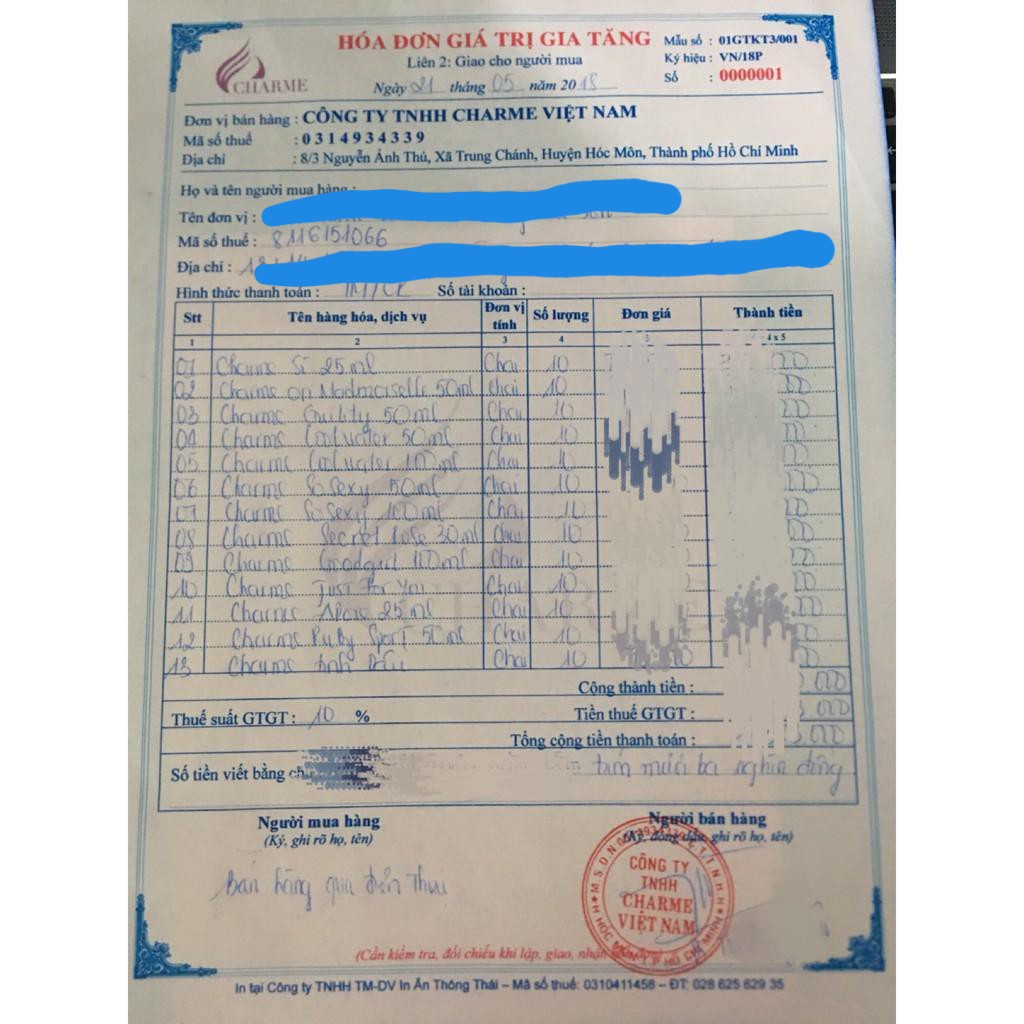 CHARME
HÓA ĐƠN GIÁ TRỊ GIA TĂNG
Liên 2: Giao cho người mua
Ngày 21 tháng 05 năm 2018
Mẫu số : 01GTKT3/001
Ký hiệu : VN/18P
Số : 0000001
Đơn vị bán hàng : CÔNG TY TNHH CHARME VIỆT NAM
Mã số thuế : 0314934339
Địa chỉ : 8/3 Nguyễn Ảnh Thủ, Xã Trung Chánh, Huyện Hóc Môn, Thành phố Hồ Chí Minh
Họ và tên người mua hàng :
Tên đơn vị :
Mã số thuế : 8116151066
Địa chỉ :
Hình thức thanh toán : TM/CK Số tài khoản :
Stt Tên hàng hóa, dịch vụ Đơn vị tính Số lượng Đơn giá Thành tiền
1 2 3 4 5 4 x 5
01 Charme Sì 25ml Chai 10
02 Charme op Madmoiselle 50ml Chai 10
03 Charme Guility 50ml Chai 10
04 Charme Coolwater 50ml Chai 10
05 Charme Coolwater 100ml Chai 10
06 Charme So Sexy 50ml Chai 10
07 Charme So Sexy 100ml Chai 10
08 Charme Secret Lose 30ml Chai 10
09 Charme Goodgirl 100ml Chai 10
10 Charme Just For You Chai 10
11 Charme 25ml Chai 10
12 Charme Ruby Sport 50ml Chai 10
13 Charme Chai 10
Cộng thành tiền : 000
Thuế suất GTGT : 10 % Tiền thuế GTGT : 000
Tổng cộng tiền thanh toán : 000
Số tiền viết bằng tám mươi ba nghìn đồng
Người mua hàng
(Ký, ghi rõ họ, tên)
Người bán hàng
(Ký, đóng dấu, ghi rõ họ, tên)
bán hàng qua điện thoại
CÔNG TY
TNHH
CHARME
VIỆT NAM
(Cần kiểm tra, đối chiếu khi lập, giao, nhận
In tại Công ty TNHH TM-DV In Ấn Thông Thái – Mã số thuế: 0310411458 – ĐT: 028 625 629 35